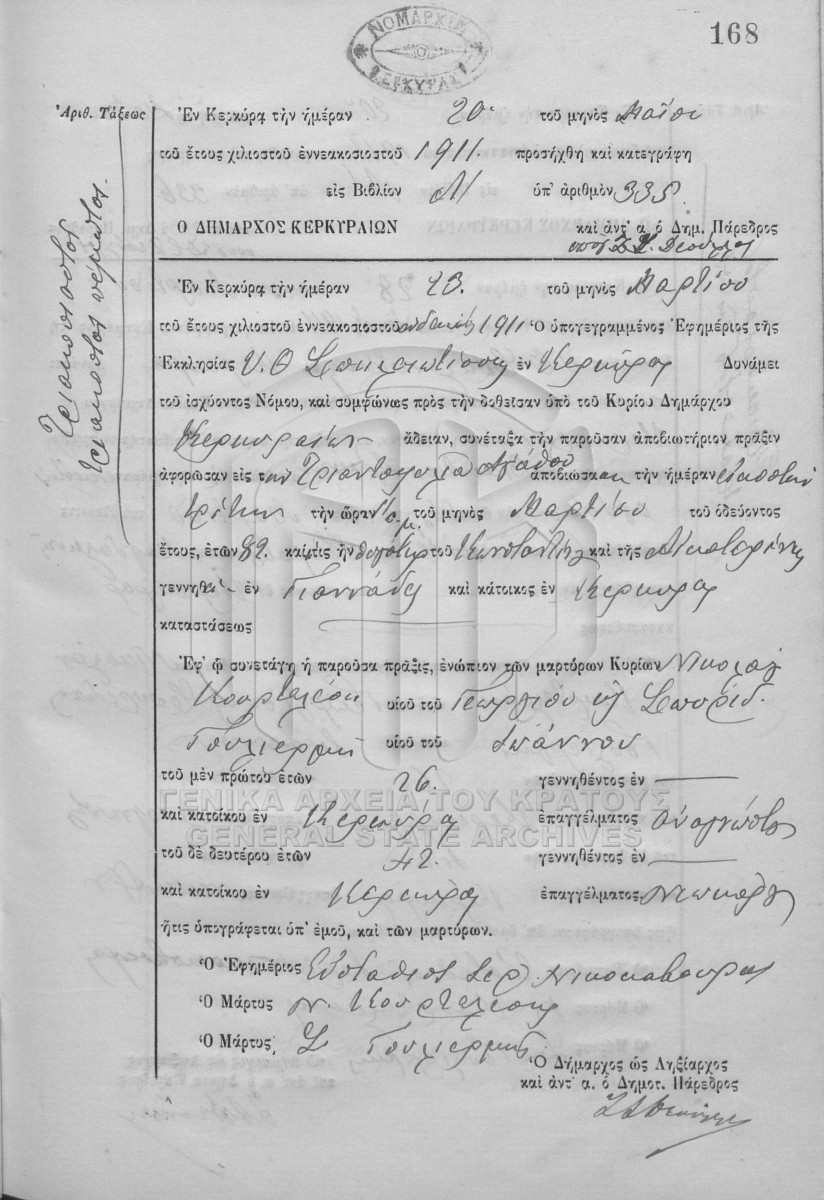 168
ΝΟΜΑΡΧΙΑ
ΚΕΡΚΥΡΑΣ
Ἀριθ. Τάξεως
Τριακοσιοστὸς
τριακοστὸς πέμπτος.
Ἐν Κερκύρᾳ τὴν ἡμέραν 20 τοῦ μηνὸς Μαΐου
τοῦ ἔτους χιλιοστοῦ ἐννεακοσιοστοῦ 1911. προσήχθη καὶ κατεγράφη
εἰς Βιβλίον ὑπ' ἀριθμὸν 335
Ο ΔΗΜΑΡΧΟΣ ΚΕΡΚΥΡΑΙΩΝ καὶ ἀντ' α. ὁ Δημ. Πάρεδρος
Ἐν Κερκύρᾳ τὴν ἡμέραν 23. τοῦ μηνὸς Μαρτίου
τοῦ ἔτους χιλιοστοῦ ἐννεακοσιοστοῦ 1911 Ὁ ὑπογεγραμμένος Ἐφημέριος τῆς
Ἐκκλησίας Υ. Θ Σπηλαιωτίσσης ἐν Κερκύρᾳ Δυνάμει
τοῦ ἰσχύοντος Νόμου, καὶ συμφώνως πρὸς τὴν δοθεῖσαν ὑπὸ τοῦ Κυρίου Δημάρχου
Κερκυραίων ἄδειαν, συνέταξα τὴν παροῦσαν ἀποβιωτήριον πρᾶξιν
ἀφορῶσαν εἰς τὴν Τριανταφυλλιὰ Ἀγάθου ἀποβιώσασαν τὴν ἡμέραν εἰκοστὴν
τρίτην τὴν ὥραν μ. τοῦ μηνὸς Μαρτίου τοῦ ὁδεύοντος
ἔτους, ἐτῶν 82. καὶ τις ἦν θυγάτηρ τοῦ Κωνσταντίνου καὶ τῆς Αἰκατερίνης
γεννηθ ἐν Γιαννάδες καὶ κάτοικος ἐν Κερκύρᾳ
καταστάσεως
Ἐφ' ᾧ συνετάγη ἡ παροῦσα πρᾶξις, ἐνώπιον τῶν μαρτύρων Κυρίων Νικολάου
Κουρτελέση υἱοῦ τοῦ Γεωργίου καὶ Σπυρίδ.
Γουλιέρμη υἱοῦ τοῦ Ἰωάννου
τοῦ μὲν πρώτου ἐτῶν 26. γεννηθέντος ἐν
καὶ κατοίκου ἐν Κερκύρᾳ ἐπαγγέλματος ἀναγνώστου
τοῦ δὲ δευτέρου ἐτῶν 42. γεννηθέντος ἐν
καὶ κατοίκου ἐν Κερκύρᾳ ἐπαγγέλματος
ἥτις ὑπογράφεται ὑπ' ἐμοῦ, καὶ τῶν μαρτύρων.
Ὁ Ἐφημέριος Εὐστάθιος Ἱερ.
Ὁ Μάρτυς Ν. Κουρτελέσης
Ὁ Μάρτυς Σ. Γουλιέρμης
Ὁ Δήμαρχος ὡς Ληξίαρχος
καὶ ἀντ' α. ὁ Δημοτ. Πάρεδρος
ΓΕΝΙΚΑ ΑΡΧΕΙΑ ΤΟΥ ΚΡΑΤΟΥΣ
GENERAL STATE ARCHIVES